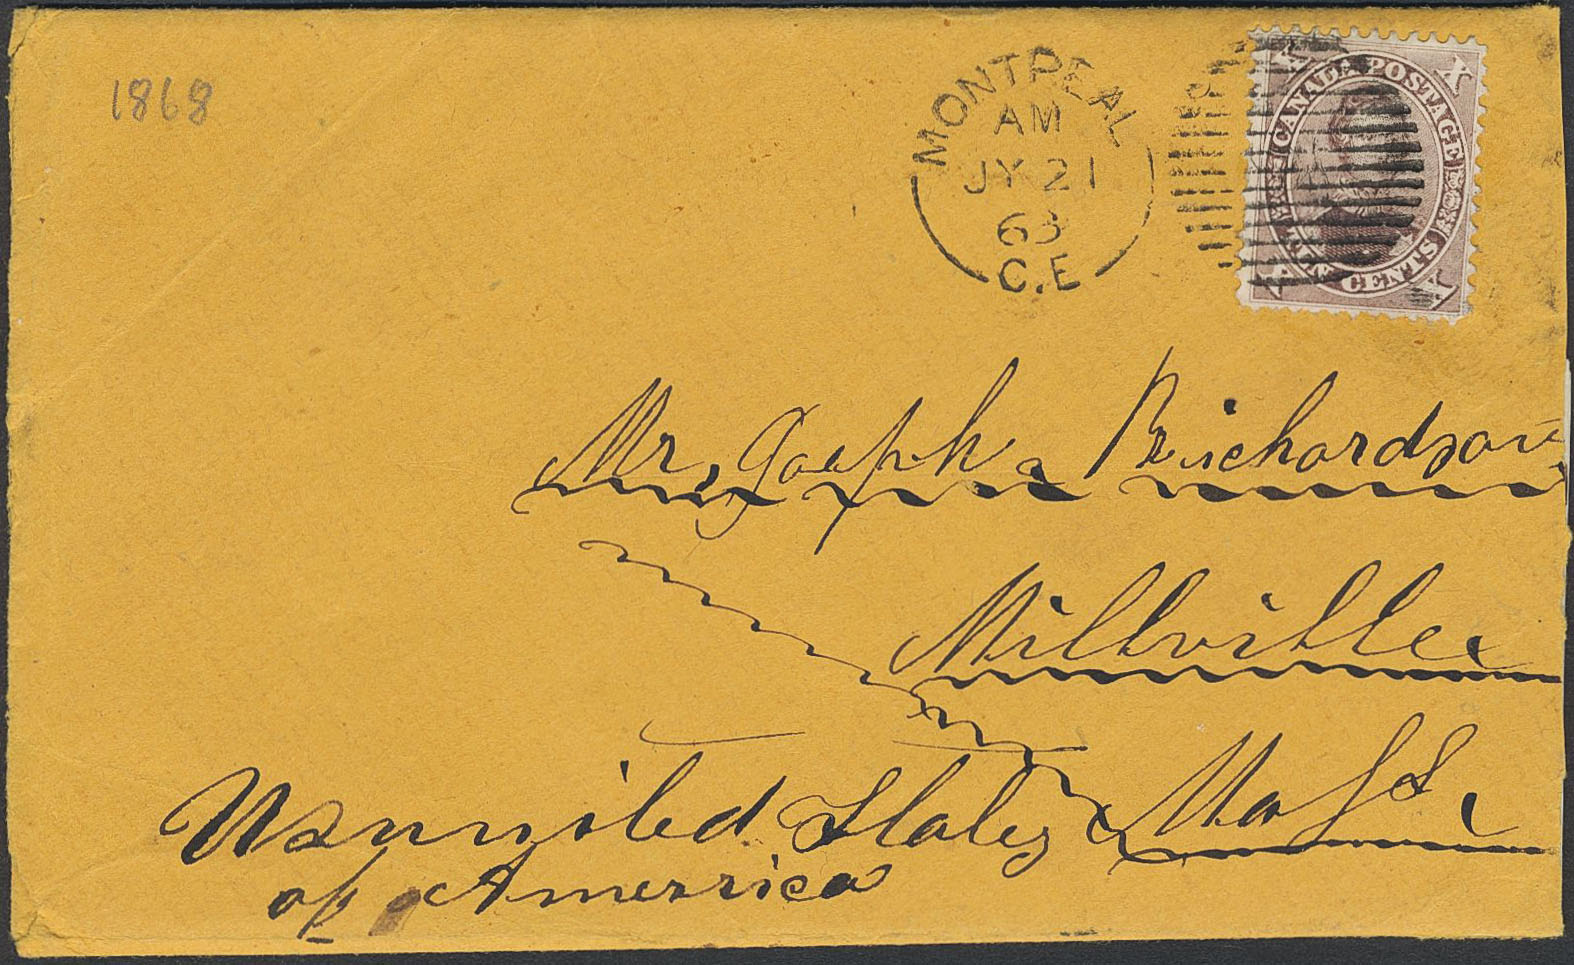 1868
MONTREAL
AM
JY 21
63
C.E
X X
CANADA POSTAGE
TEN CENTS
X X
Mr. Joseph. Richardson
Millville
Mass.
Usnnited States
of America